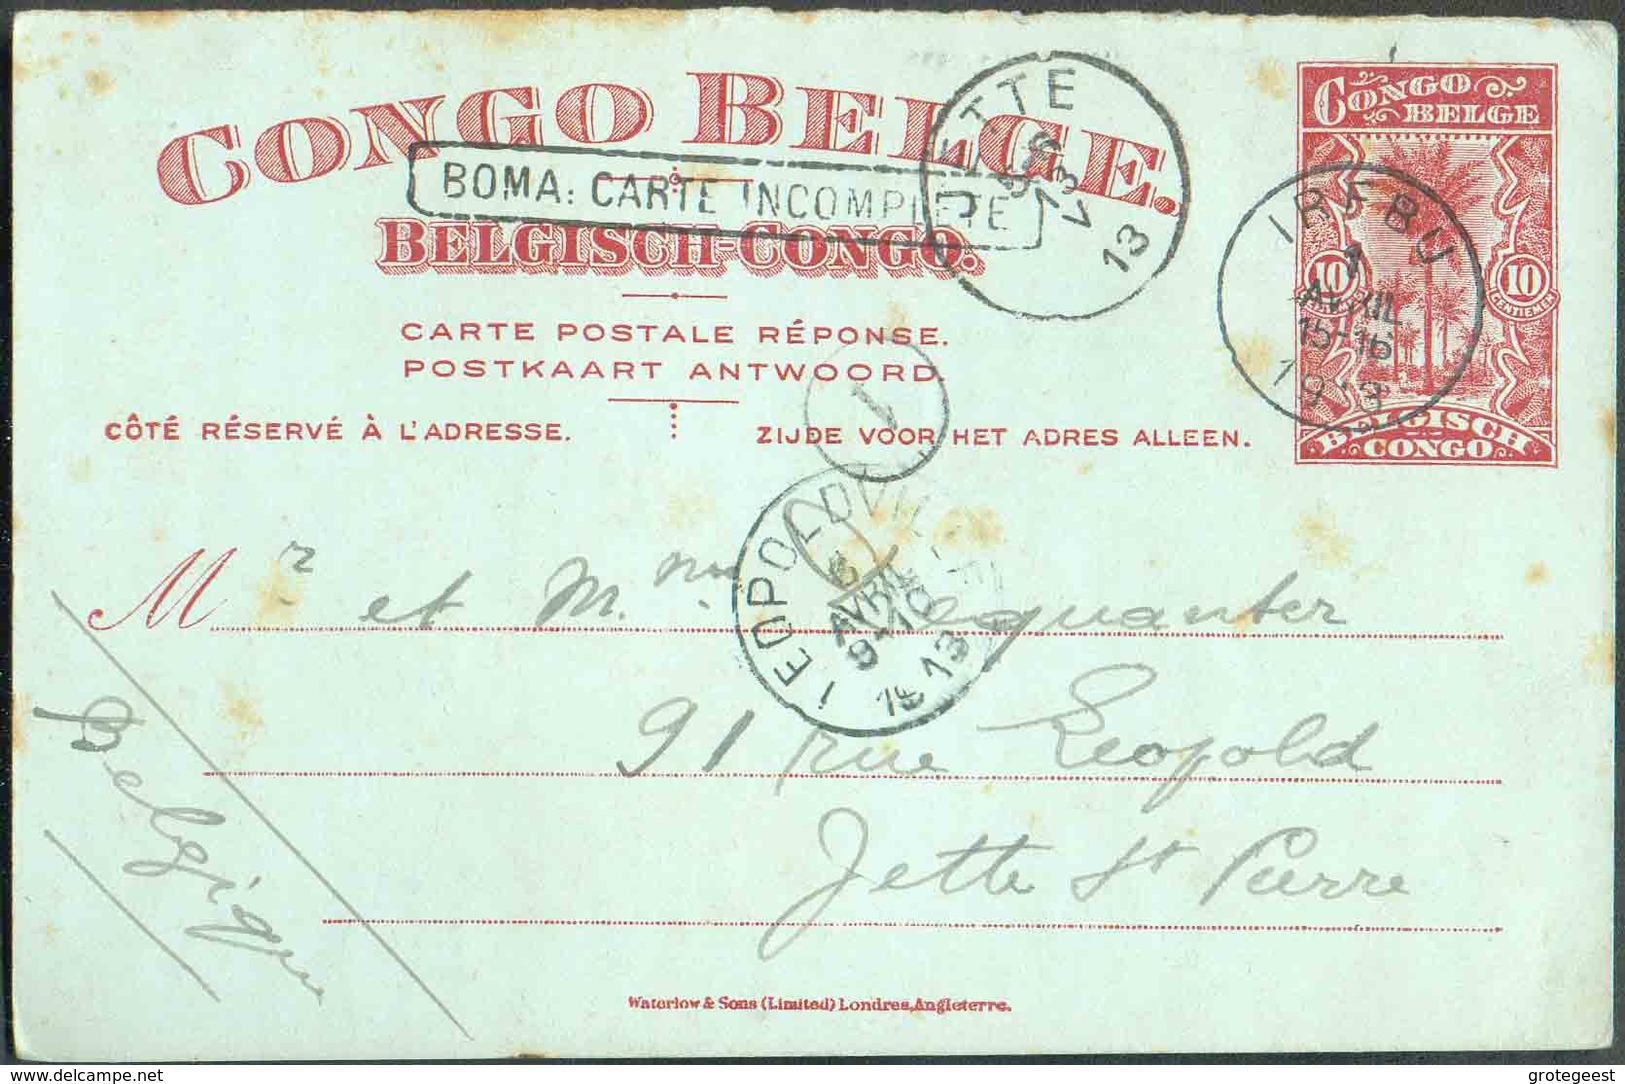 CONGO BELGE.
BELGISCH-CONGO.
BOMA: CARTE INCOMPLETE
JETTE
13
CARTE POSTALE RÉPONSE.
POSTKAART ANTWOORD.
CÔTÉ RÉSERVÉ À L'ADRESSE.
ZIJDE VOOR HET ADRES ALLEEN.
CONGO
BELGE
10
10
CENTIEMEN
BELGISCH
CONGO
IREBU
1
AVRIL
15-16
1913
1
LEOPOLDVILLE
6
AVRIL
9-10
1913
Mr et Mme
91 rue Léopold
Jette St Pierre
Belgique
Waterlow & Sons (Limited) Londres, Angleterre.
delcampe.net
grotegeest